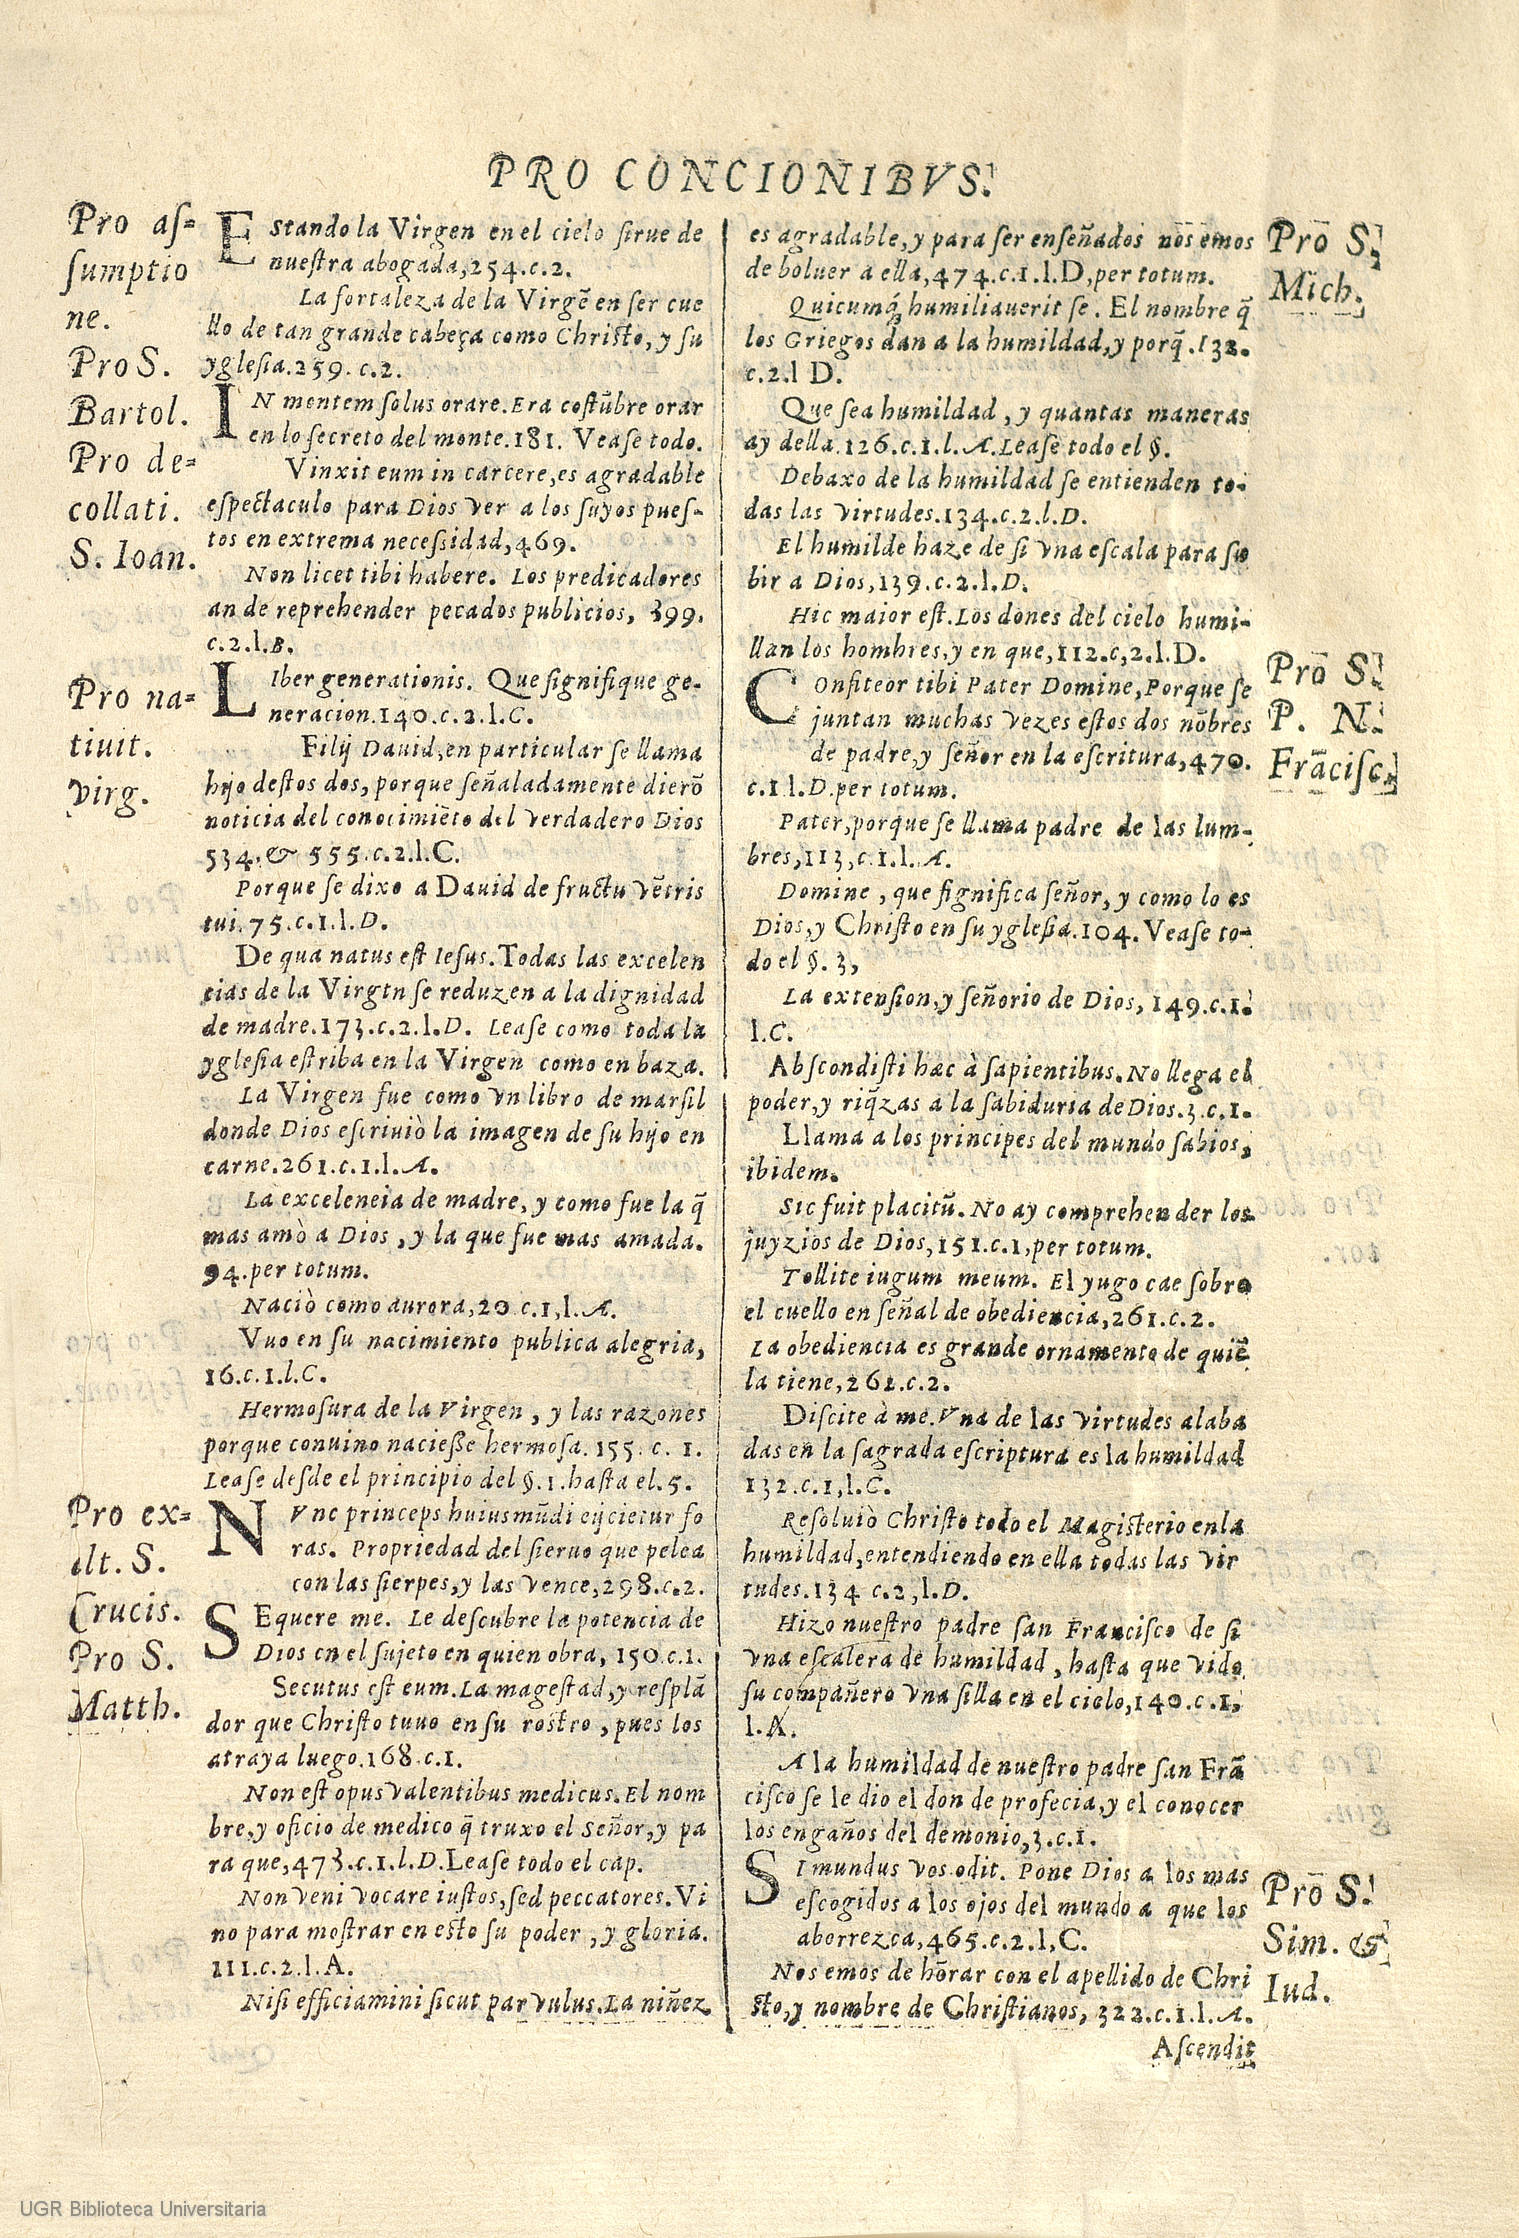 PRO CONCIONIBVS.
Pro aſ=
ſumptio
ne.
EStando la Virgen en el cielo ſirue de
nueſtra abogada,254.c.2.
La fortaleza de la Virgẽ en ſer cue
llo de tan grande cabeça como Chriſto, y ſu
ygleſia.259.c.2.
Pro S.
Bartol.
IN montem ſolus orare. Era coſtũbre orar
en lo ſecreto del monte.181. Veaſe todo.
Pro de=
collati.
S. Ioan.
Vinxit eum in carcere, es agradable
eſpectaculo para Dios ver a los ſuyos pueſ-
tos en extrema neceſsidad,469.
Non licet tibi habere. Los predicadores
an de reprehender pecados publicios, 399.
c.2.l.B.
Pro na=
tiuit.
virg.
LIber generationis. Que ſignifique ge-
neracion.140.c.2.l.C.
Filij Dauid, en particular ſe llama
hijo deſtos dos, porque ſeñaladamente dierõ
noticia del conocimiẽto del verdadero Dios
534. & 555.c.2.l.C.
Porque ſe dixo a Dauid de fructu vẽtris
tui.75.c.1.l.D.
De qua natus eſt Ieſus. Todas las excelen
cias de la Virgtn ſe reduzen a la dignidad
de madre.173.c.2.l.D. Leaſe como toda la
ygleſia eſtriba en la Virgen como en baza.
La Virgen fue como vn libro de marſil
donde Dios eſcriuiò la imagen de ſu hijo en
carne.261.c.1.l.A.
La exceleneia de madre, y como fue la q̃
mas amò a Dios, y la que fue mas amada.
94.per totum.
Naciò como aurora,20 c.1,l.A.
Vuo en ſu nacimiento publica alegria,
16.c.1.l.C.
Hermoſura de la Virgen, y las razones
porque conuino nacieſſe hermoſa.155.c.1.
Leaſe deſde el principio del §.1.haſta el.5.
Pro ex=
alt. S.
Crucis.
NVnc princeps huius mũdi eijcietur fo
ras. Propriedad del ſieruo que pelea
con las ſierpes, y las vence,298.c.2.
Pro S.
Matth.
SEquere me. Le deſcubre la potencia de
Dios en el ſujeto en quien obra, 150.c.1.
Secutus eſt eum. La mageſtad, y reſplã
dor que Chriſto tuuo en ſu roſtro, pues los
atraya luego.168.c.1.
Non eſt opus valentibus medicus. El nom
bre, y oficio de medico q̃ truxo el Señor, y pa
ra que,473.c.1.l.D.Leaſe todo el cap.
Non veni vocare iuſtos, ſed peccatores. Vi
no para moſtrar en eſto ſu poder, y gloria.
111.c.2.l.A.
Niſi efficiamini ſicut parvulus. La niñez
Prõ S.
Mich.
es agradable, y para ſer enſeñados nos emos
de boluer a ella,474.c.1.l.D,per totum.
Quicumq; humiliauerit ſe. El nombre q̃
los Griegos dan a la humildad, y porq̃.132.
c.2.l D.
Que ſea humildad, y quantas maneras
ay della.126.c.1.l.A.Leaſe todo el §.
Debaxo de la humildad ſe entienden to-
das las virtudes.134.c.2.l.D.
El humilde haze de ſi vna eſcala para ſu
bir a Dios,139.c.2.l.D.
Hic maior eſt. Los dones del cielo humi-
llan los hombres, y en que,112.c,2.l.D.
Prõ S.
P. N.
Frãciſc.
COnfiteor tibi Pater Domine, Porque ſe
juntan muchas vezes eſtos dos nõbres
de padre, y ſeñor en la eſcritura,470.
c.1 l.D.per totum.
Pater, porque ſe llama padre de las lum-
bres,113,c.1.l.A.
Domine, que ſignifica ſeñor, y como lo es
Dios, y Chriſto en ſu ygleſia.104. Veaſe to-
do el §.3,
La extenſion, y ſeñorio de Dios, 149.c.1.
l.C.
Abſcondiſti hæc à ſapientibus. No llega el
poder, y riq̃zas a la ſabiduria de Dios.3.c.1.
Llama a los principes del mundo ſabios,
ibidem.
Sic fuit placitũ. No ay comprehender los
juyzios de Dios,151.c.1,per totum.
Tollite iugum meum. El yugo cae ſobre
el cuello en ſeñal de obediencia,261.c.2.
La obediencia es grande ornamento de quiẽ
la tiene,262.c.2.
Diſcite à me. Vna de las virtudes alaba
das en la ſagrada eſcriptura es la humildad
132.c.1,l.C.
Reſoluiò Chriſto todo el Magiſterio en la
humildad, entendiendo en ella todas las vir
tudes.134 c.2,l.D.
Hizo nueſtro padre ſan Franciſco de ſi
vna eſcalera de humildad, haſta que vido
ſu compañero vna ſilla en el cielo,140.c.1,
l.A.
A la humildad de nueſtro padre ſan Frã
ciſco ſe le dio el don de profecia, y el conocer
los engaños del demonio,3.c.1.
Prõ S.
Sim. &
Iud.
SI mundus vos odit. Pone Dios a los mas
eſcogidos a los ojos del mundo a que los
aborrezca,465.c.2.l,C.
Nos emos de hõrar con el apellido de Chri
ſto, y nombre de Chriſtianos, 322.c.1.l.A.
Aſcendit
UGR Biblioteca Universitaria